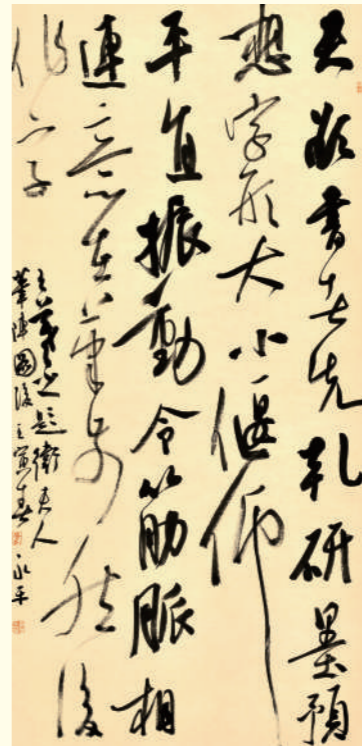 夫欲書者先乾研墨預
想字形大小偃仰
平直振動令筋脈相
連意在筆前然後
作字
王羲之題衛夫人
筆陣圖後壬寅春永平